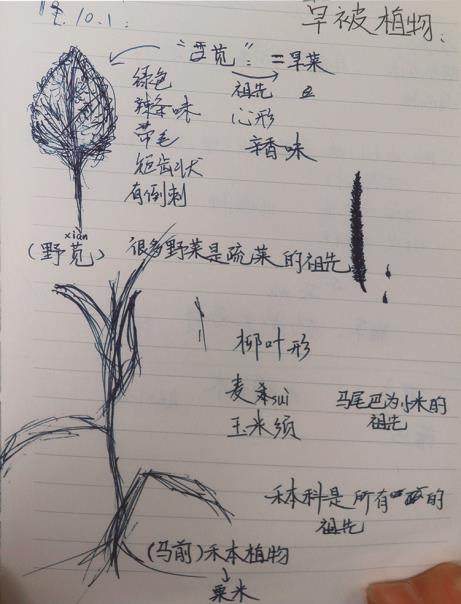 10.1.
旱被植物.
"雪苋" = 旱菜
绿色
辣条味
带毛
短齿状
有倒刺
祖先
心形
辛香味
xiàn
(野苋)
很多野菜是蔬菜的祖先
柳叶形
麦
玉米须
马尾巴为小米的
祖先
禾本科是所有 的
祖先
(马前)禾本植物
粟米